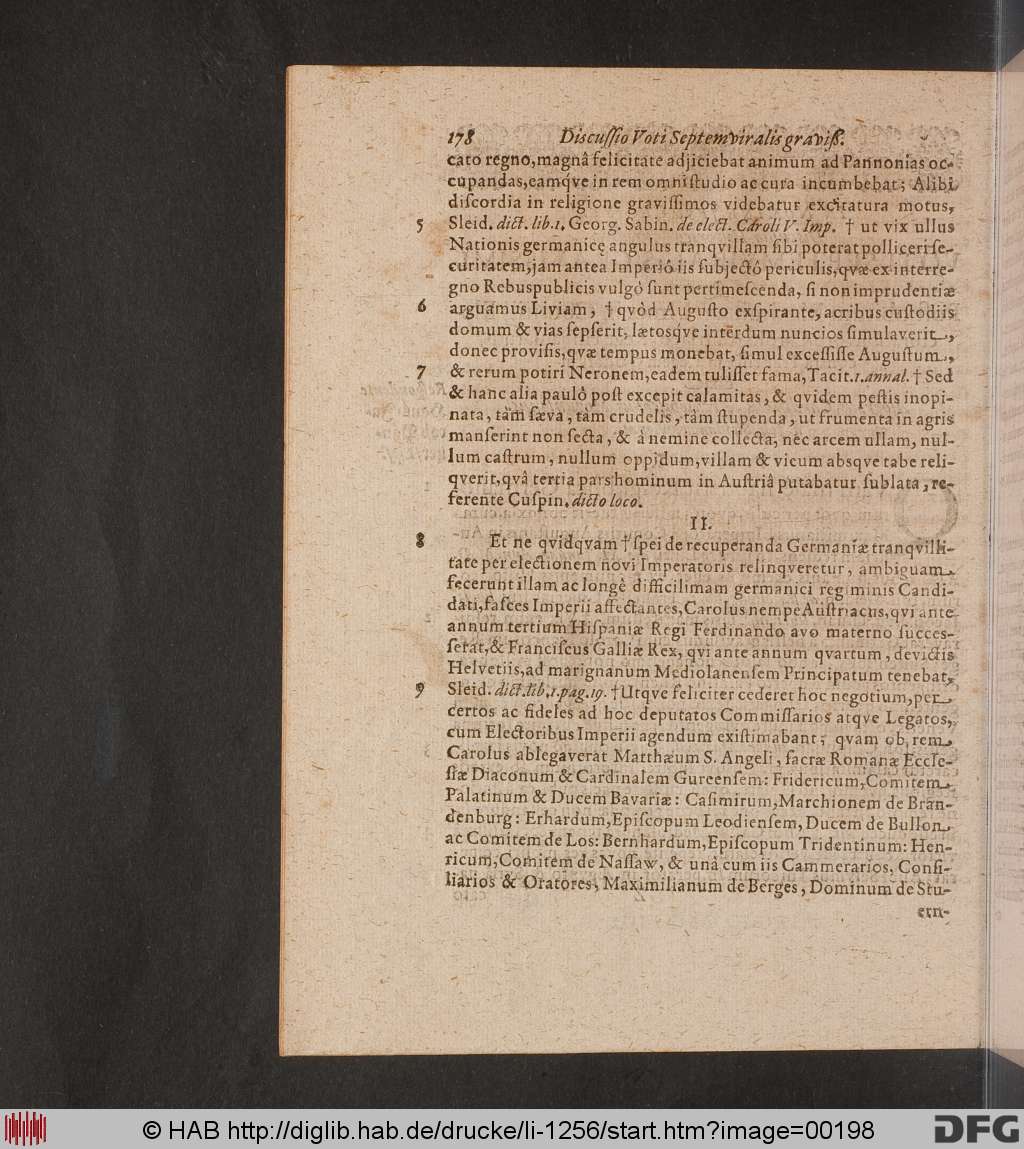 178 Discuſſio Voti Septemviralis graviß.
cato regno, magnâ felicitate adjiciebat animum ad Pannonias oc-
cupandas, eamq́ve in rem omni ſtudio ac cura incumbebat; Alibi
diſcordia in religione graviſſimos videbatur excitatura motus,
5 Sleid. dict. lib. 1. Georg. Sabin. de elect. Caroli V. Imp. † ut vix ullus
Nationis germanicę angulus tranqvillam ſibi poterat polliceri ſe-
curitatem, jam antea Imperiô iis ſubjectô periculis, qvæ ex interre-
gno Rebuspublicis vulgò ſunt pertimeſcenda, ſi non imprudentiæ
6 arguamus Liviam, † qvòd Auguſto exſpirante, acribus cuſtodiis
domum & vias ſepſerit, lætosq́ve interdum nuncios ſimulaverit,
donec proviſis, qvæ tempus monebat, ſimul exceſſiſſe Auguſtum,
7 & rerum potiri Neronem, eadem tuliſſet fama, Tacit. 1. annal. † Sed
& hanc alia paulò poſt excepit calamitas, & qvidem peſtis inopi-
nata, tàm ſæva, tàm crudelis, tàm ſtupenda, ut frumenta in agris
manſerint non ſecta, & à nemine collecta, nec arcem ullam, nul-
lum caſtrum, nullum oppidum, villam & vicum absqve tabe reli-
qverit, qvâ tertia pars hominum in Auſtriâ putabatur ſublata, re-
ferente Cuſpin. dicto loco.
II.
8 Et ne qvidqvam † ſpei de recuperanda Germaniæ tranqvilli-
tate per electionem novi Imperatoris relinqveretur, ambiguam
fecerunt illam ac longè difficilimam germanici regiminis Candi-
dati, faſces Imperii affectantes, Carolus nempe Auſtriacus, qvi ante
annum tertium Hiſpaniæ Regi Ferdinando avo materno ſucceſ-
ſerat, & Franciſcus Galliæ Rex, qvi ante annum qvartum, devictis
Helvetiis, ad marignanum Mediolanenſem Principatum tenebat,
9 Sleid. dict. lib. 1. pag. 19. † Utqve feliciter cederet hoc negotium, per
certos ac fideles ad hoc deputatos Commiſſarios atqve Legatos,
cum Electoribus Imperii agendum exiſtimabant; qvam ob rem
Carolus ablegaverat Matthæum S. Angeli, ſacræ Romanæ Eccle-
ſiæ Diaconum & Cardinalem Gurcenſem: Fridericum, Comitem
Palatinum & Ducem Bavariæ: Caſimirum, Marchionem de Bran-
denburg: Erhardum, Epiſcopum Leodienſem, Ducem de Bullon
ac Comitem de Los: Bernhardum, Epiſcopum Tridentinum: Hen-
ricum, Comitem de Naſſaw, & unâ cum iis Cammerarios, Conſi-
liarios & Oratores, Maximilianum de Berges, Dominum de Stu-
ern-
© HAB http://diglib.hab.de/drucke/li-1256/start.htm?image=00198
DFG